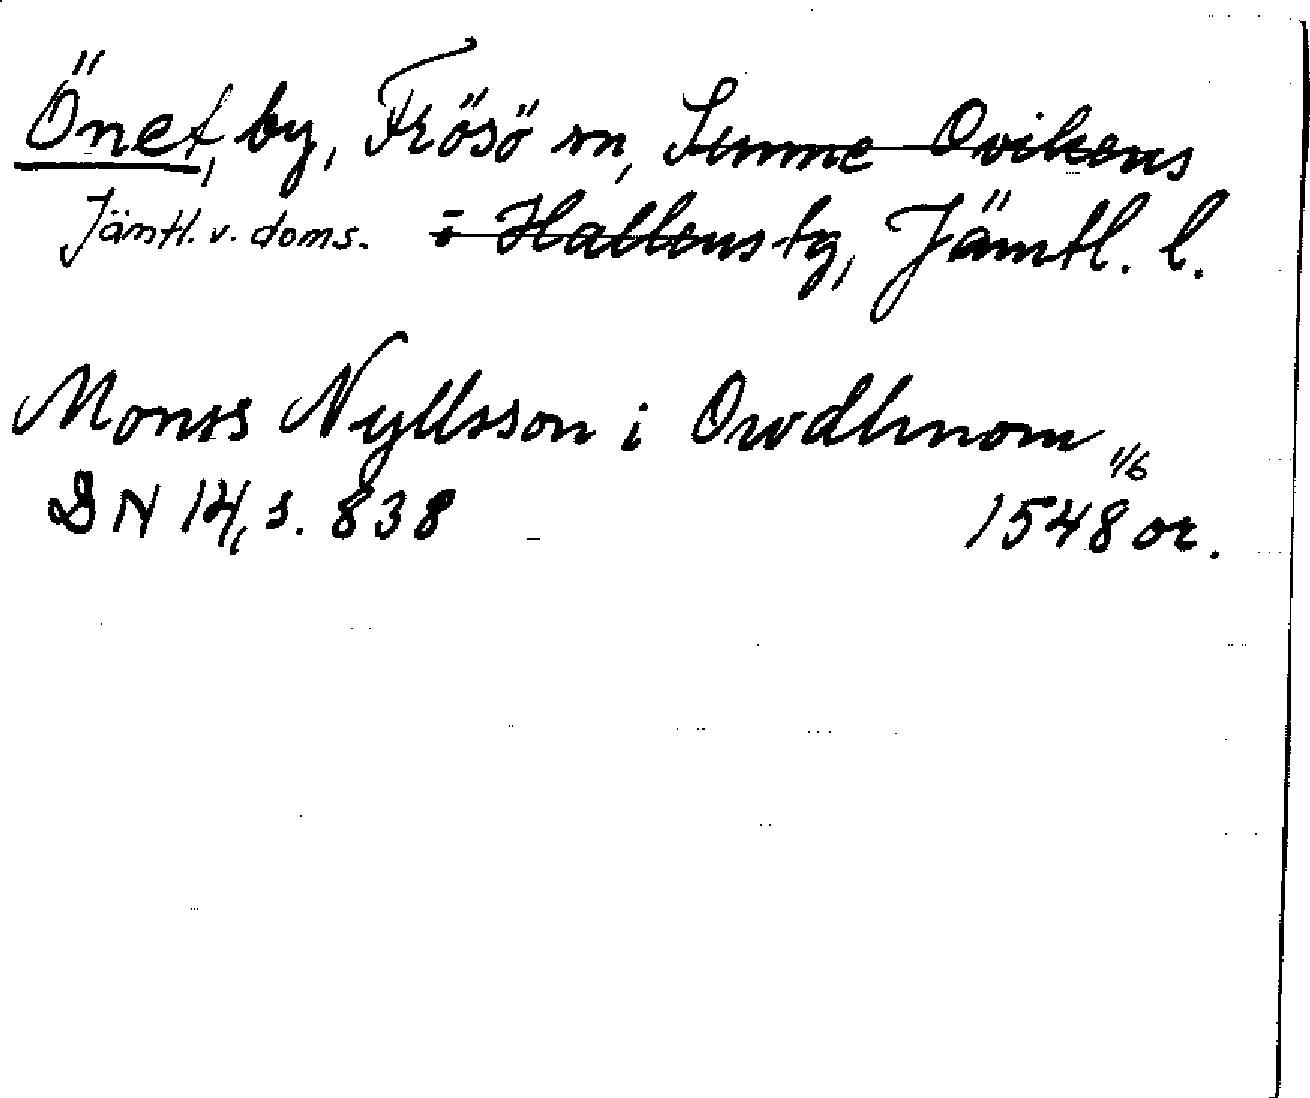 Önet, by, Frösö sn, Sunne Ovikens
Jämtl. v. doms. o Hallens tg, Jämtl. l.
Monss Nyllsson i Owdhnom 1/6
DN 14, s. 838 1548 or.